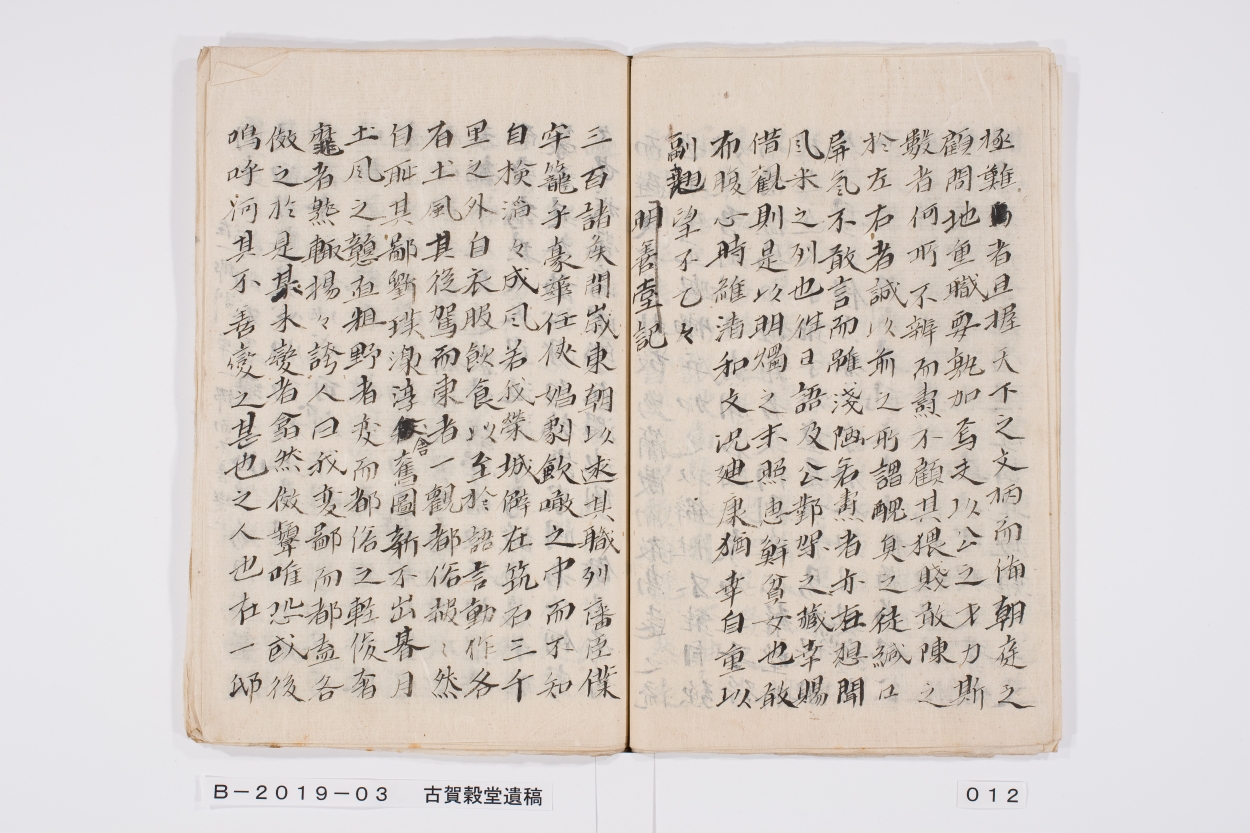 極難者且握天下之文柄而海朝庭之
顧問地重職要孰加焉夫以公之才力斯
數者何所不辨而燾不顧其猥賤敢陳之
於左右者誠以前之所謂醜臭之徒緘口
屏气不敢言而雖淺陋若燾者亦在想聞
風米之列也徃日語及公鄴架之藏幸賜
借觀則是以明燭之末照惠鮮貧女也敢
布腹心時維清和文況廸康猶幸自重以
副翹望不乙々
明善堂記
三百諸矦間歳東朝以述其職列藩臣僕
牢籠乎豪雄任俠娼劇飲噉之中而不知
自檢滔々成風若我榮城僻在筑石三千
里之外自衣服飲食以至於語言動作各
有土風其從駕而東者一觀都俗赧〻然
自耻其鄙野璞漁淳舎舊圖新不出朞月
土風之戇直粗野者変而都俗之輕俊奢
靡者熬輙揚々誇人曰我変鄙而都盍各
傚之於是其未變者翕然傚顰唯恐或後
鳴呼河其不善變之甚也之人也在一邸
B－2019－03　古賀穀堂遺稿
012